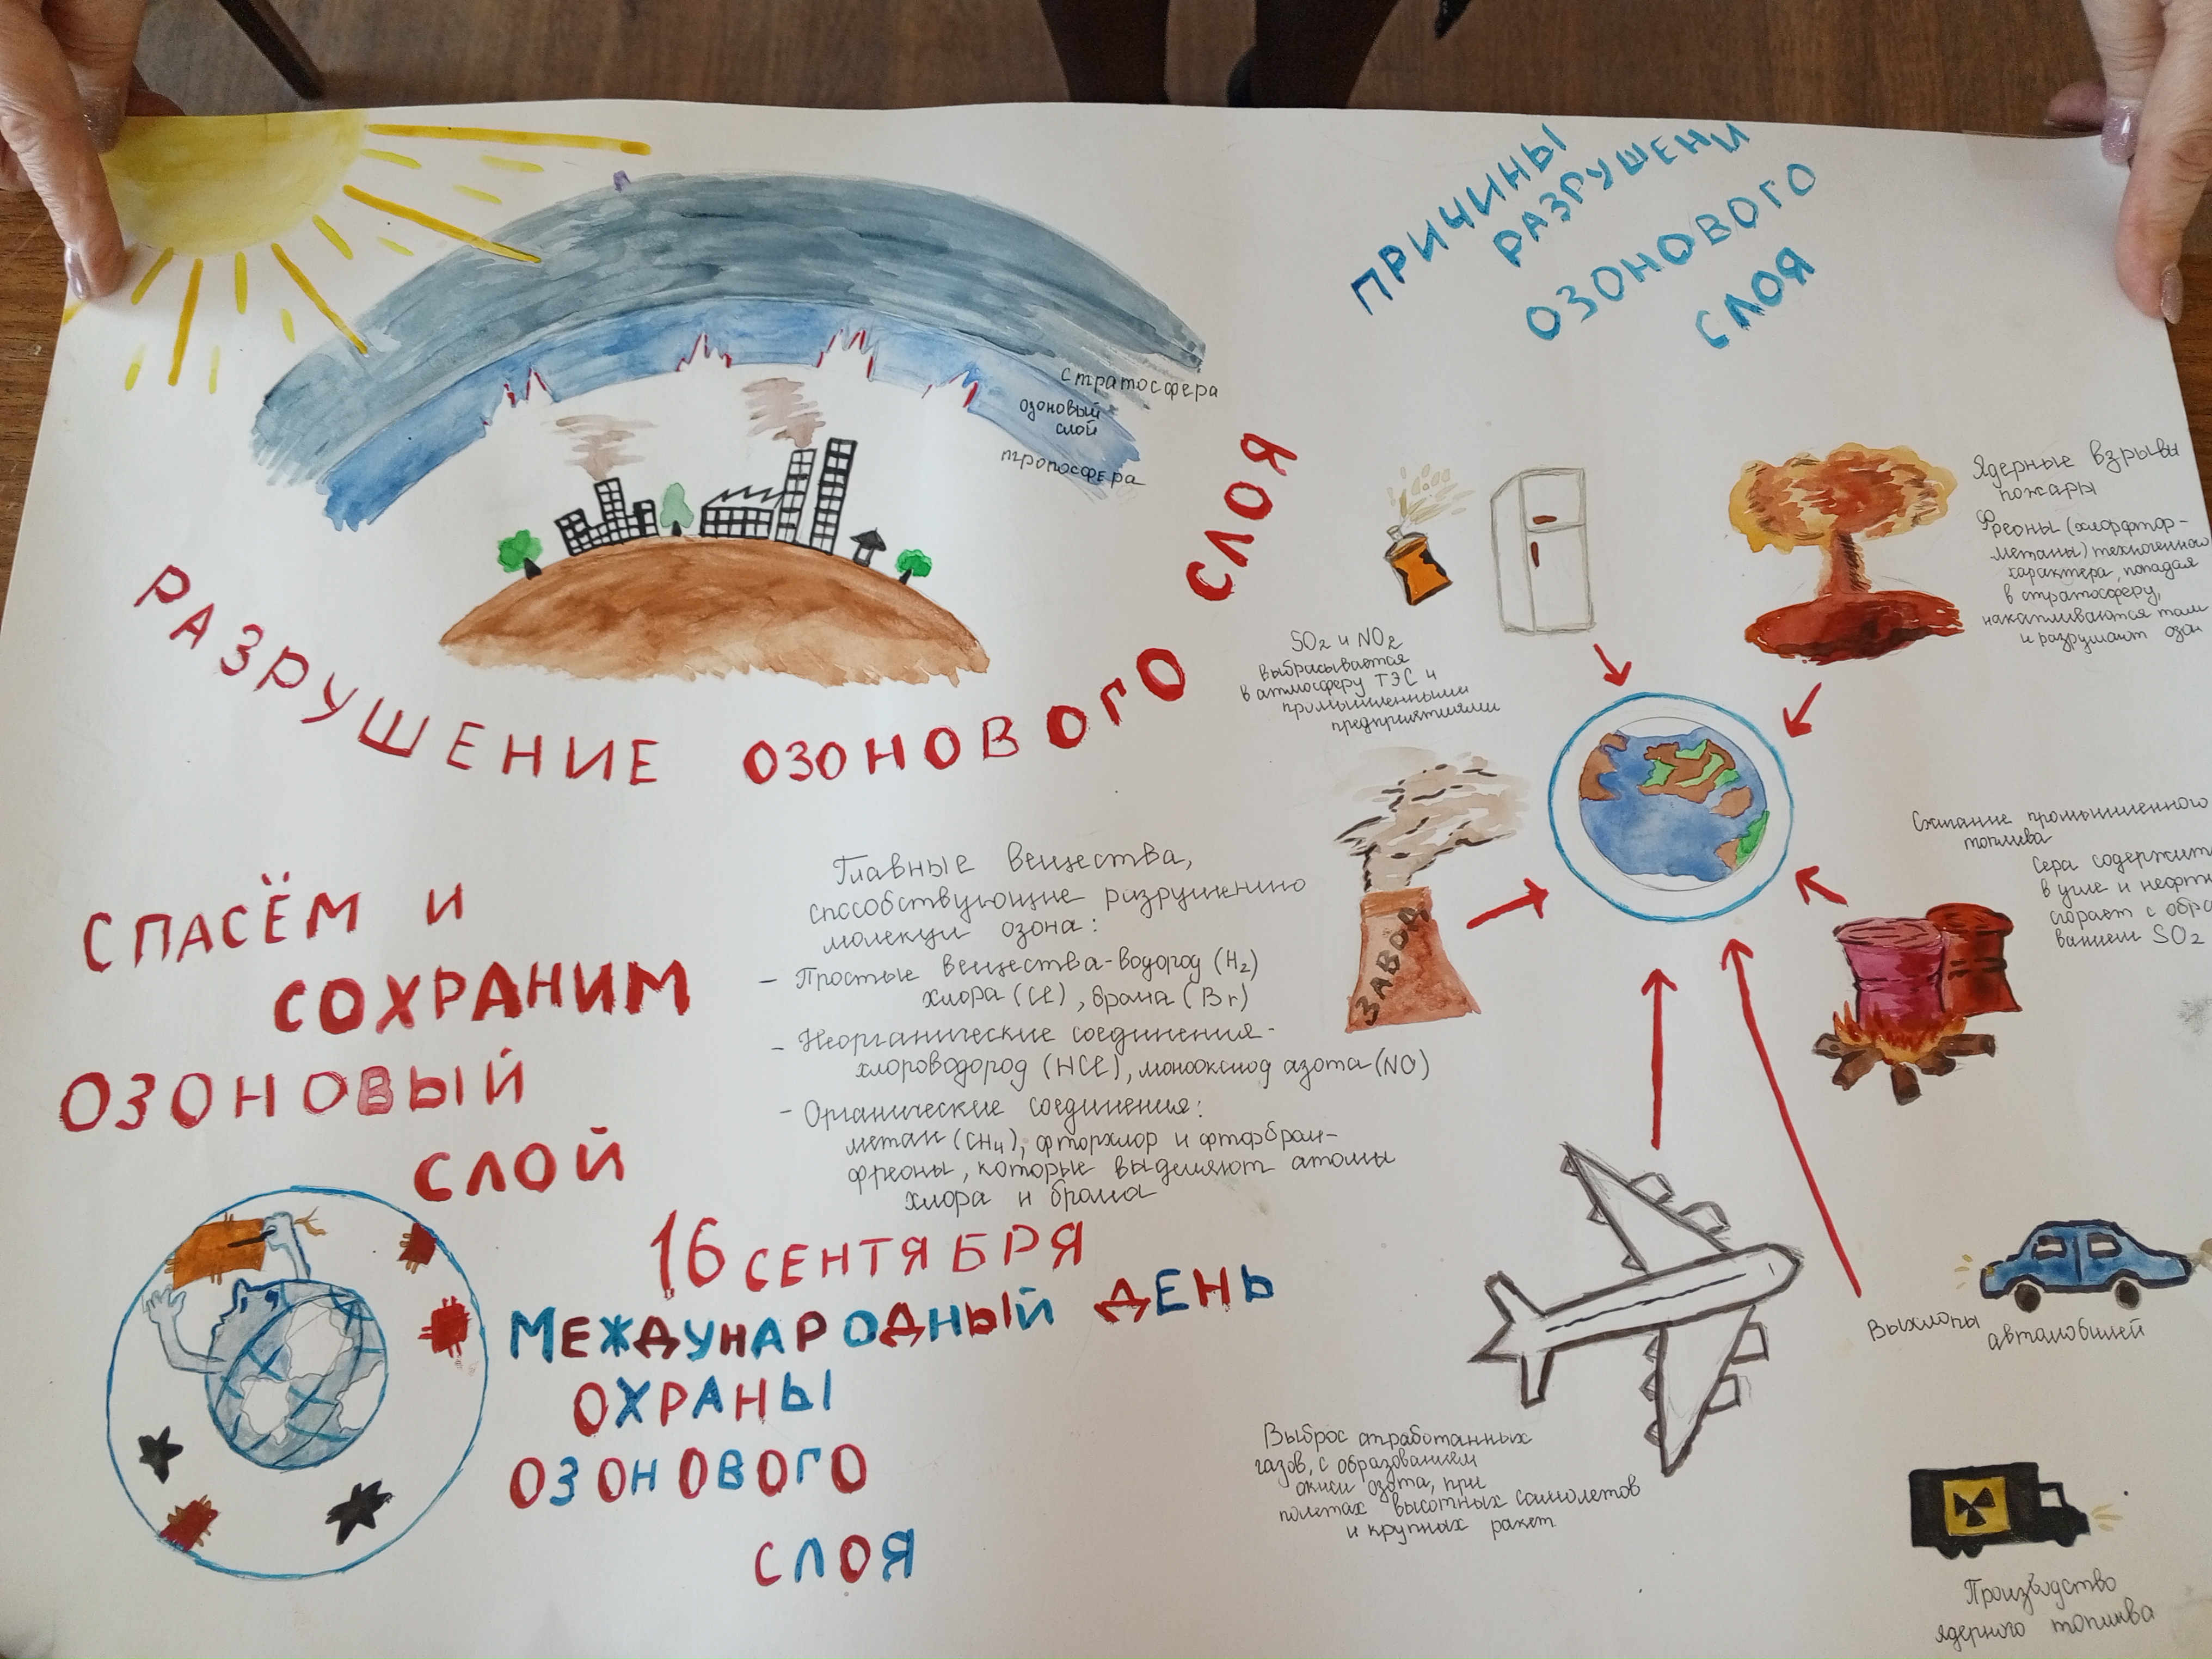 стратосфера
озоновый
слой
тропосфера
РАЗРУШЕНИЕ ОЗОНОВОГО СЛОЯ
СПАСЁМ И
СОХРАНИМ
ОЗОНОВЫЙ
СЛОЙ
Главные вещества,
способствующие разрушению
молекул озона:
- Простые вещества-водород (H₂)
хлора (Cl), брома (Br)
- Неорганические соединения-
хлороводород (HCl), монооксид азота (NO)
- Органические соединения:
метан (CH₄), фторхлор и фторбром-
фреоны, которые выделяют атомы
хлора и брома
16 СЕНТЯБРЯ
МЕЖДУНАРОДНЫЙ ДЕНЬ
ОХРАНЫ
ОЗОНОВОГО
СЛОЯ
ПРИЧИНЫ
РАЗРУШЕНИ
ОЗОНОВОГО
СЛОЯ
SO₂ и NO₂
выбрасывается
в атмосферу ТЭС и
промышленными
предприятиями
ЗАВОД
Ядерные взрывы
пожары
Фреоны (хлорфтор-
метаны) техногенного
характера, попадая
в стратосферу,
накапливаются там
и разрушают озон
Сжигание промышленного
топлива
Сера содержит
в угле и нефти
сгорает с обра
ванием SO₂
Выхлопы
автомобилей
Выброс отработанных
газов, с образованием
окиси азота, при
полетах высотных самолетов
и крупных ракет
Производство
ядерного топлива